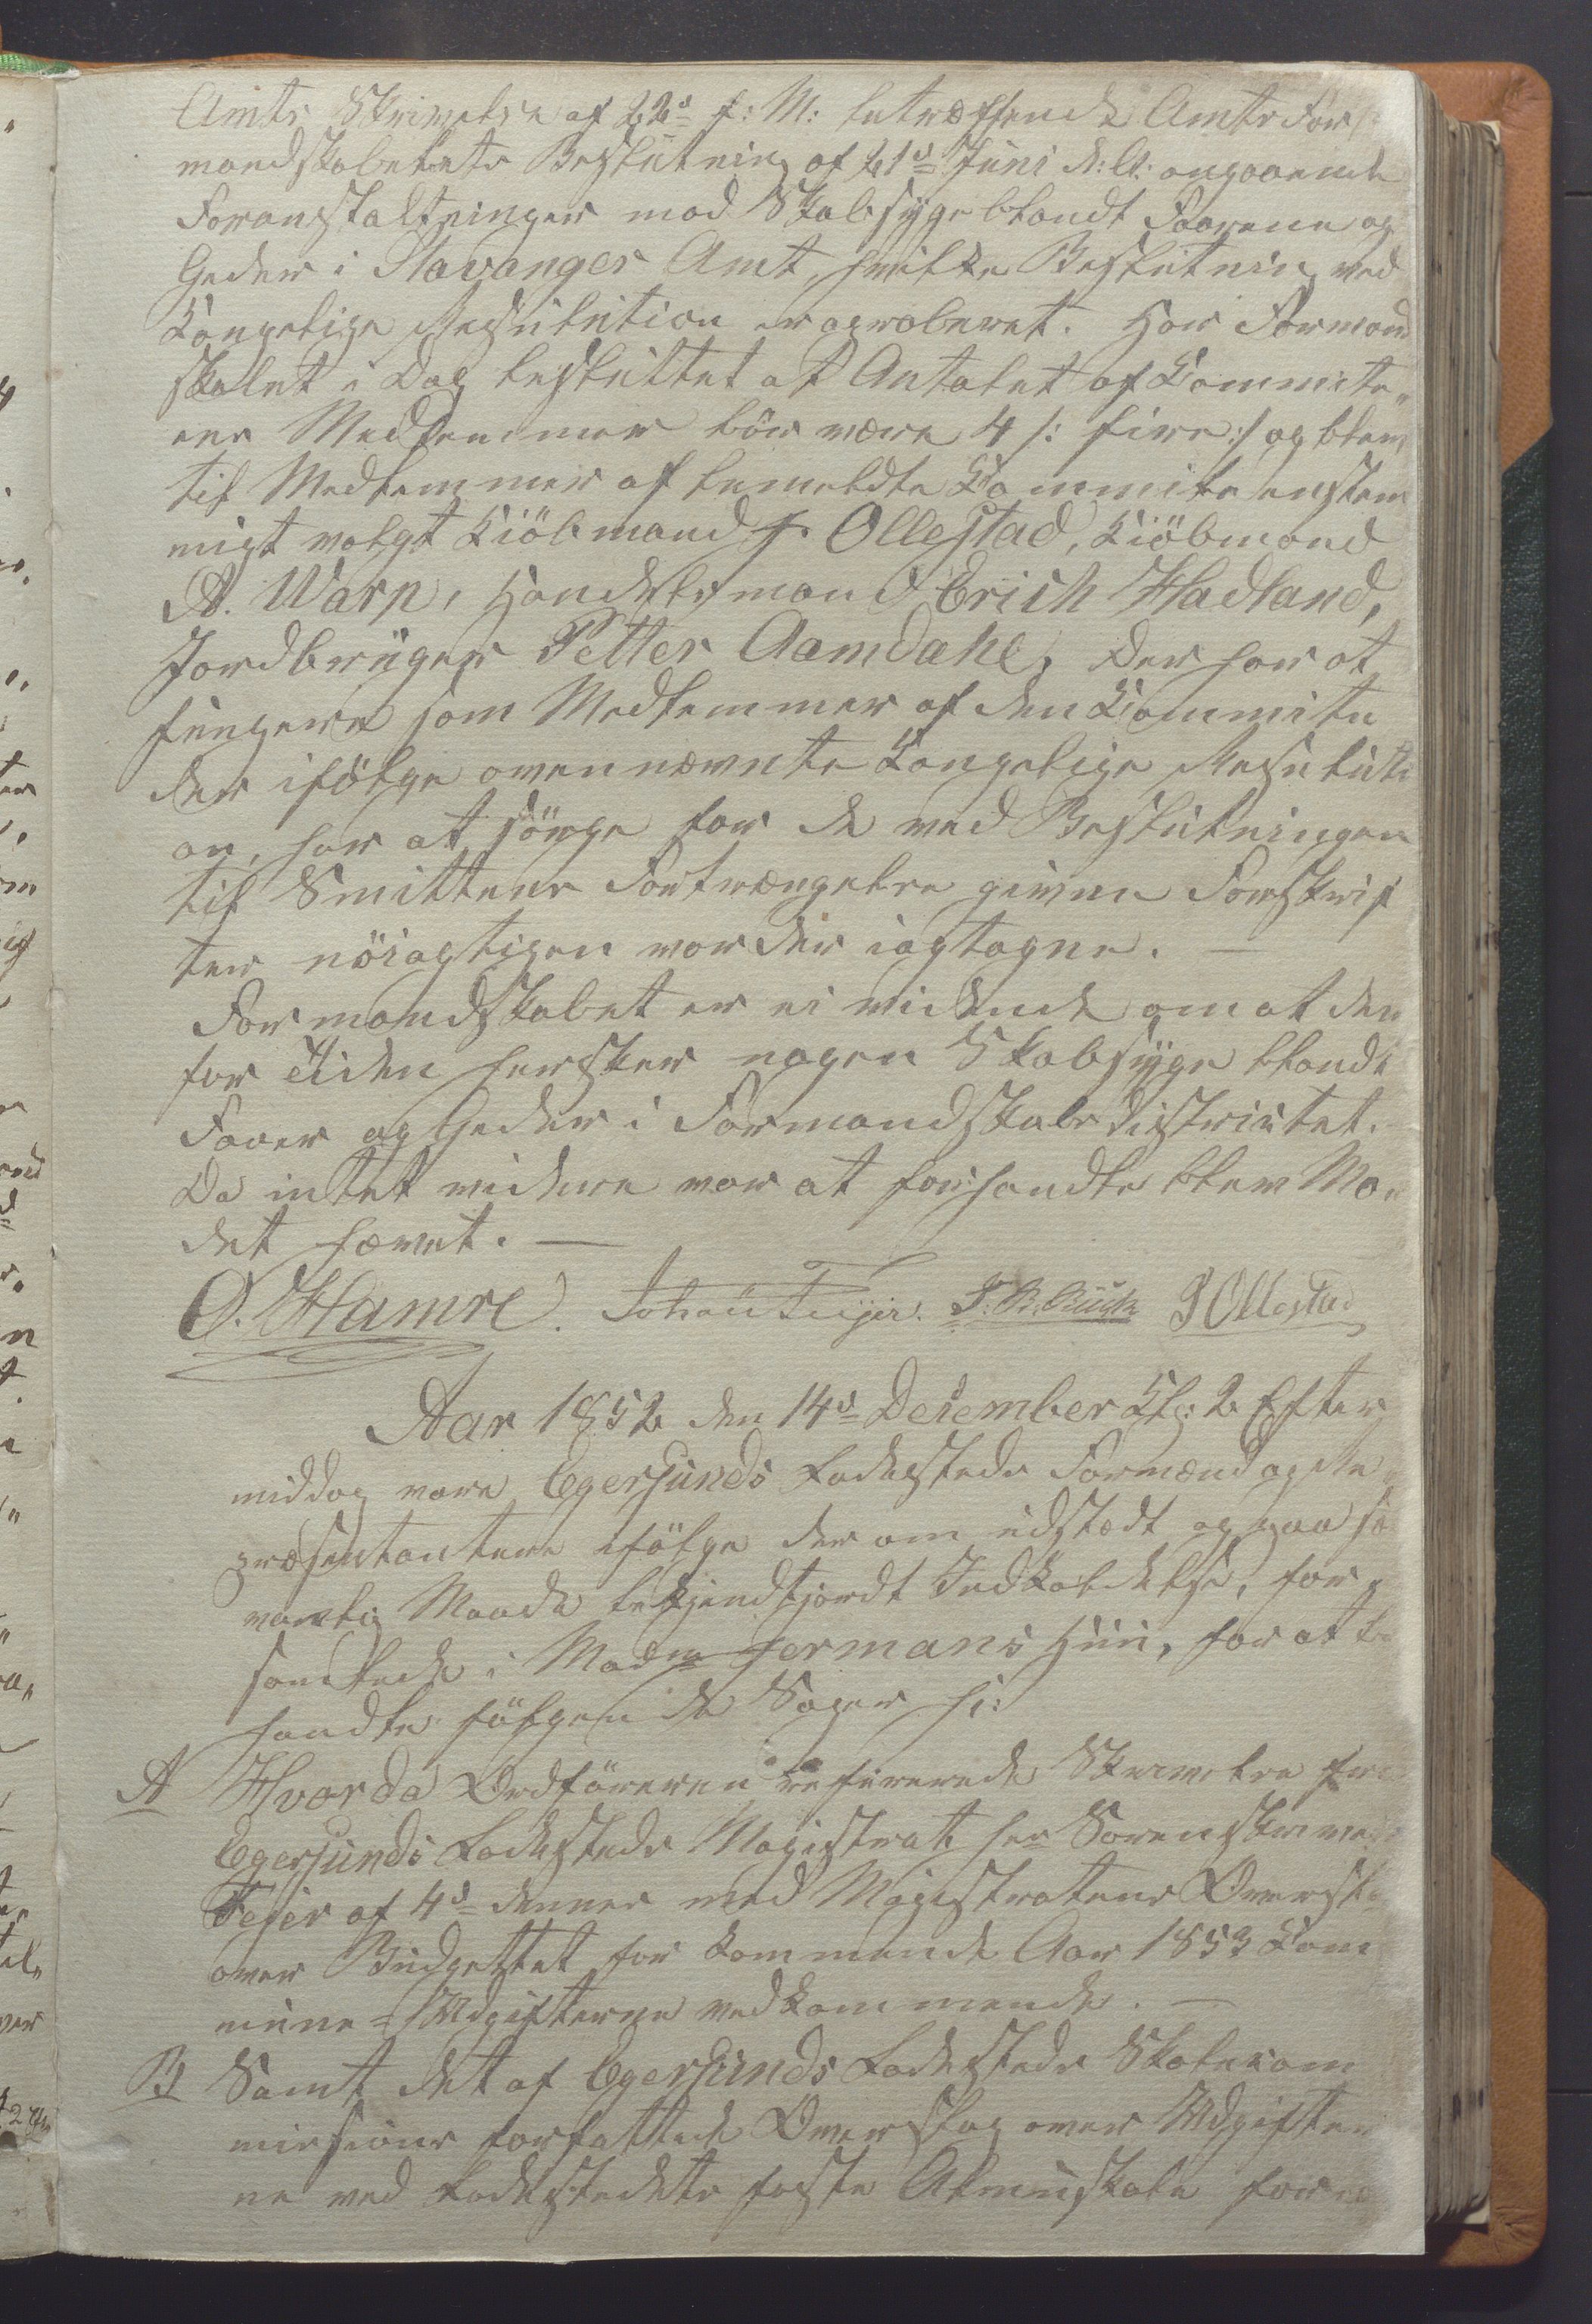 Amts Skrivelse af 22d f: M: betræffende Amtsfor
mandskabetets Beslutning af 21d Juni d: A: angaaende
Foranstaltninger mod Skabsyge blandt Faarene og
Geder i Stavanger Amt, hvilke Beslutning ved
Kongelige Resulution er aproberet. Har Formand
skabet i Dag besluttet at Antalet af Kommite„
ens Medlemmer bör være 4 /: fire :/ og blev
til Medlemmer af bemeldte Kommite enstem
migt valgt Kiöbmand J. Ollestad, Kiöbmand
A. Warp, Handelsmand Erich Hadland,
Jordbruger Petter Aamdahl, der har at
fungere som Medlemmer af den Kommite
der ifölge ovennævnte Kongelige Resuluti
on, har at sörge for de ved Beslutningen
til Smittens Fortrængelse givne Forskrif
ter nöiagtigen vorder iagtagne. —
Formandskabet er ei vidende om at der
for Tiden hersker nogen Skabsyge blandt
Faaer og Geder i Formandskabsdistrictet.
Da intet videre var at forhandle blev Mö„
det hævet. —
O. Hamre. Johan Feyer. J Ollestad
Aar 1852 den 14d December Kl: 2 Efter
middag vare Egersunds Ladesteds Formænd og Re
præsentantere ifölge derom udstædt og paa sæ
vanlig Maade bekjendtgjordt Indkaldelse, for
samlede i Madm Hermans Huus, for at be
handle fölgende Sager h:
A Hvorda Ordföreren refererede Skrivelse fra
Egersunds Ladesteds Magistrat her Sorenskriver
Fejer af 4d dennes med Magistratens Overslag
over Budgettet for kommende Aar 1853 Kom
mune=Udgifterne vedkommende. —
B Samt det af Egersunds Ladesteds Skolecom
missions forfattede Overslag over Udgifter
ne ved Ladestedets faste Almueskole for